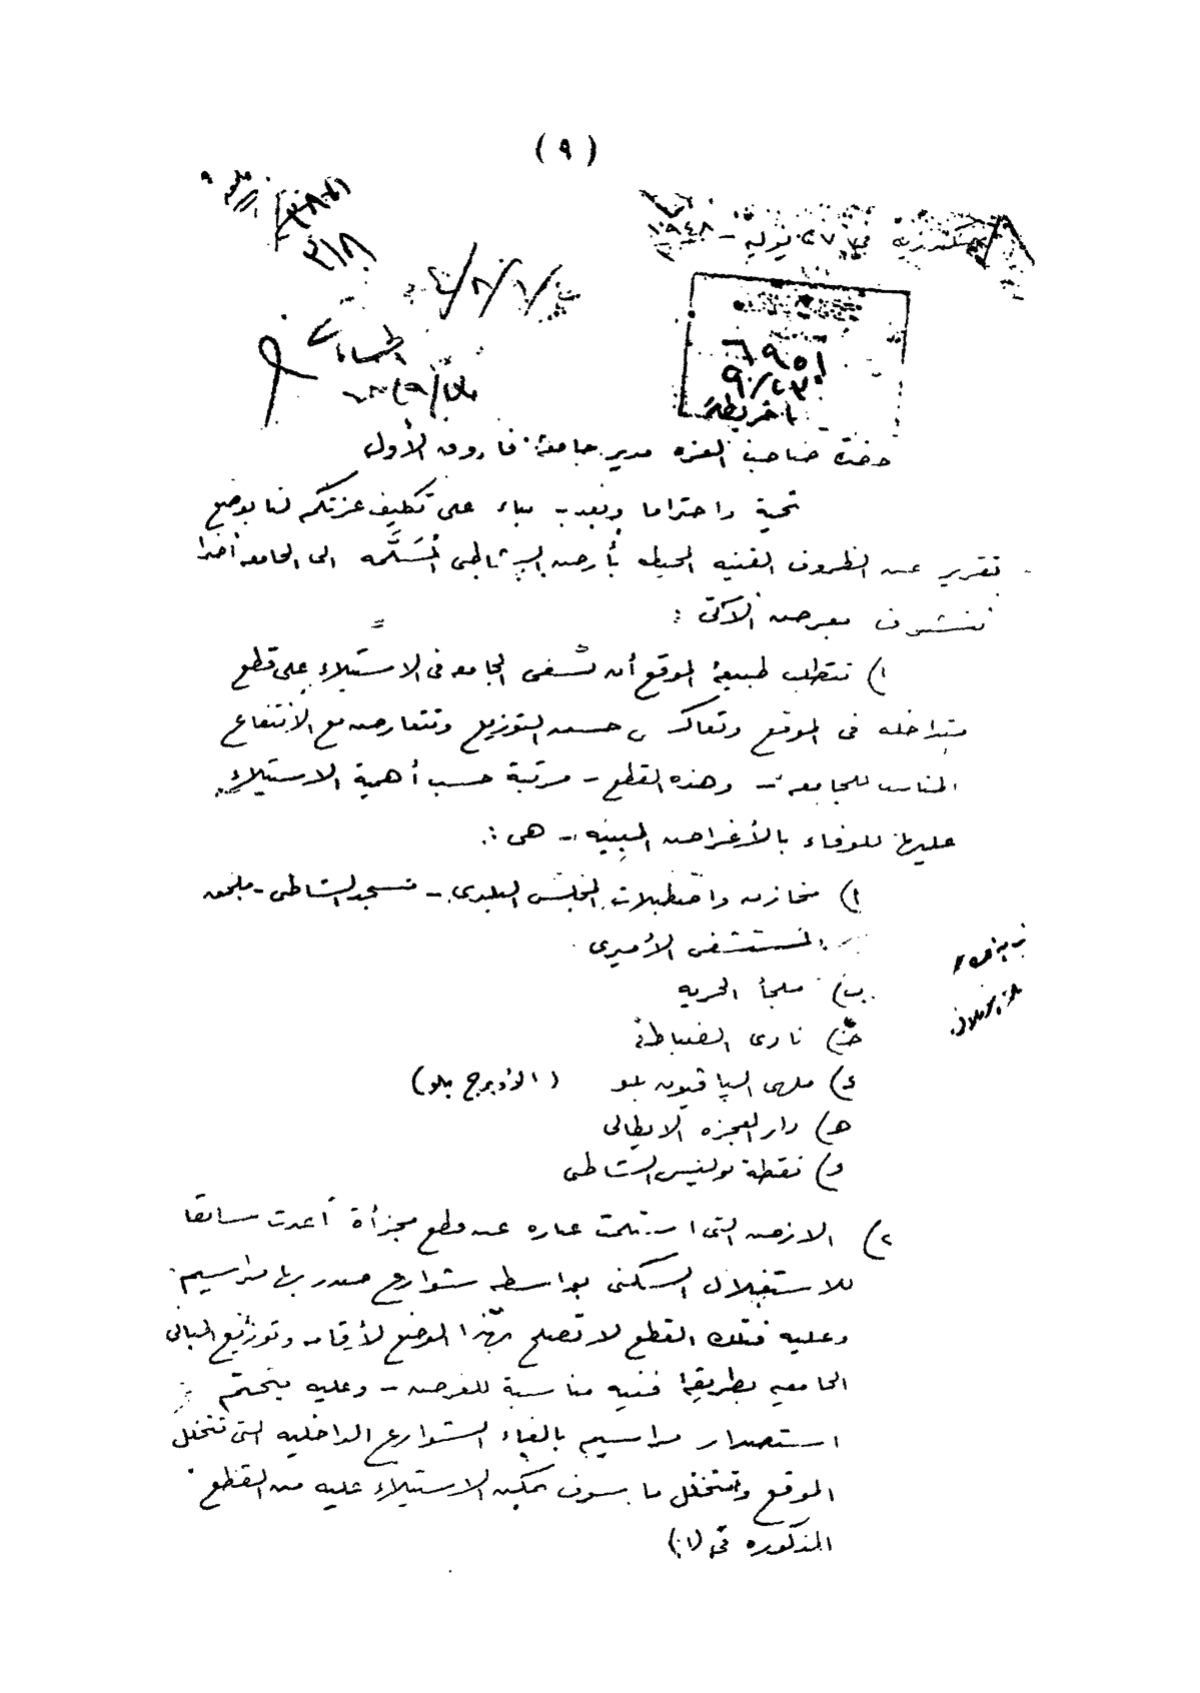 ( ٩ )
اسكندرية في ٢٧ يولية - ١٩٤٨
٦٩٥١
٩/٢٣
١ خريطة
حضرة صاحب العزه مدير جامعة فاروق الأول
تحية واحتراما وبعد - بناء على تكليف عزتكم لنا بوضع
تقرير عن الظروف الفنيه المحيطه بأرض الشاطبى المُسَلَّمه الى الجامعه أخيرا
نتشرف بعرض الآتى :
١) تتطلب طبيعة الموقع أن تسعى الجامعه فى الاستيلاء على قطع
متداخله فى الموقع وتعاكس حسن التوزيع وتتعارض مع الانتفاع
المناسب للجامعه - وهذه القطع - مرتبة حسب أهمية الاستيلاء
عليها للوفاء بالأغراض المبينه - هى :
ا) مخازن واصطبلات المجلس البلدى - مسجد الشاطبى - ملحق
المستشفى الأميرى
ب) ملجأ الحريه
حـ) نادى الضباط
د) ملهى الپاڤيون بلو (الأوبرج بلو)
هـ) دار العجزه الايطالى
و) نقطة بوليس الشاطبى
٢) الارض التى استلمت عباره عن قطع مجزأة أعدت سابقا
للاستغلال السكنى بواسطه شوارع صدر بها مراسيم
وعليه فتلك القطع لا تصلح بهذا الوضع لأقامه وتوزيع المبانى
الجامعيه بطريقة فنيه مناسبة للغرض - وعليه يتحتم
استصدار مراسيم بالغاء الشوارع الداخليه التى تتخلل
الموقع وتتخلل ما سوف يمكن الاستيلاء عليه من القطع
المذكوره فى (١)